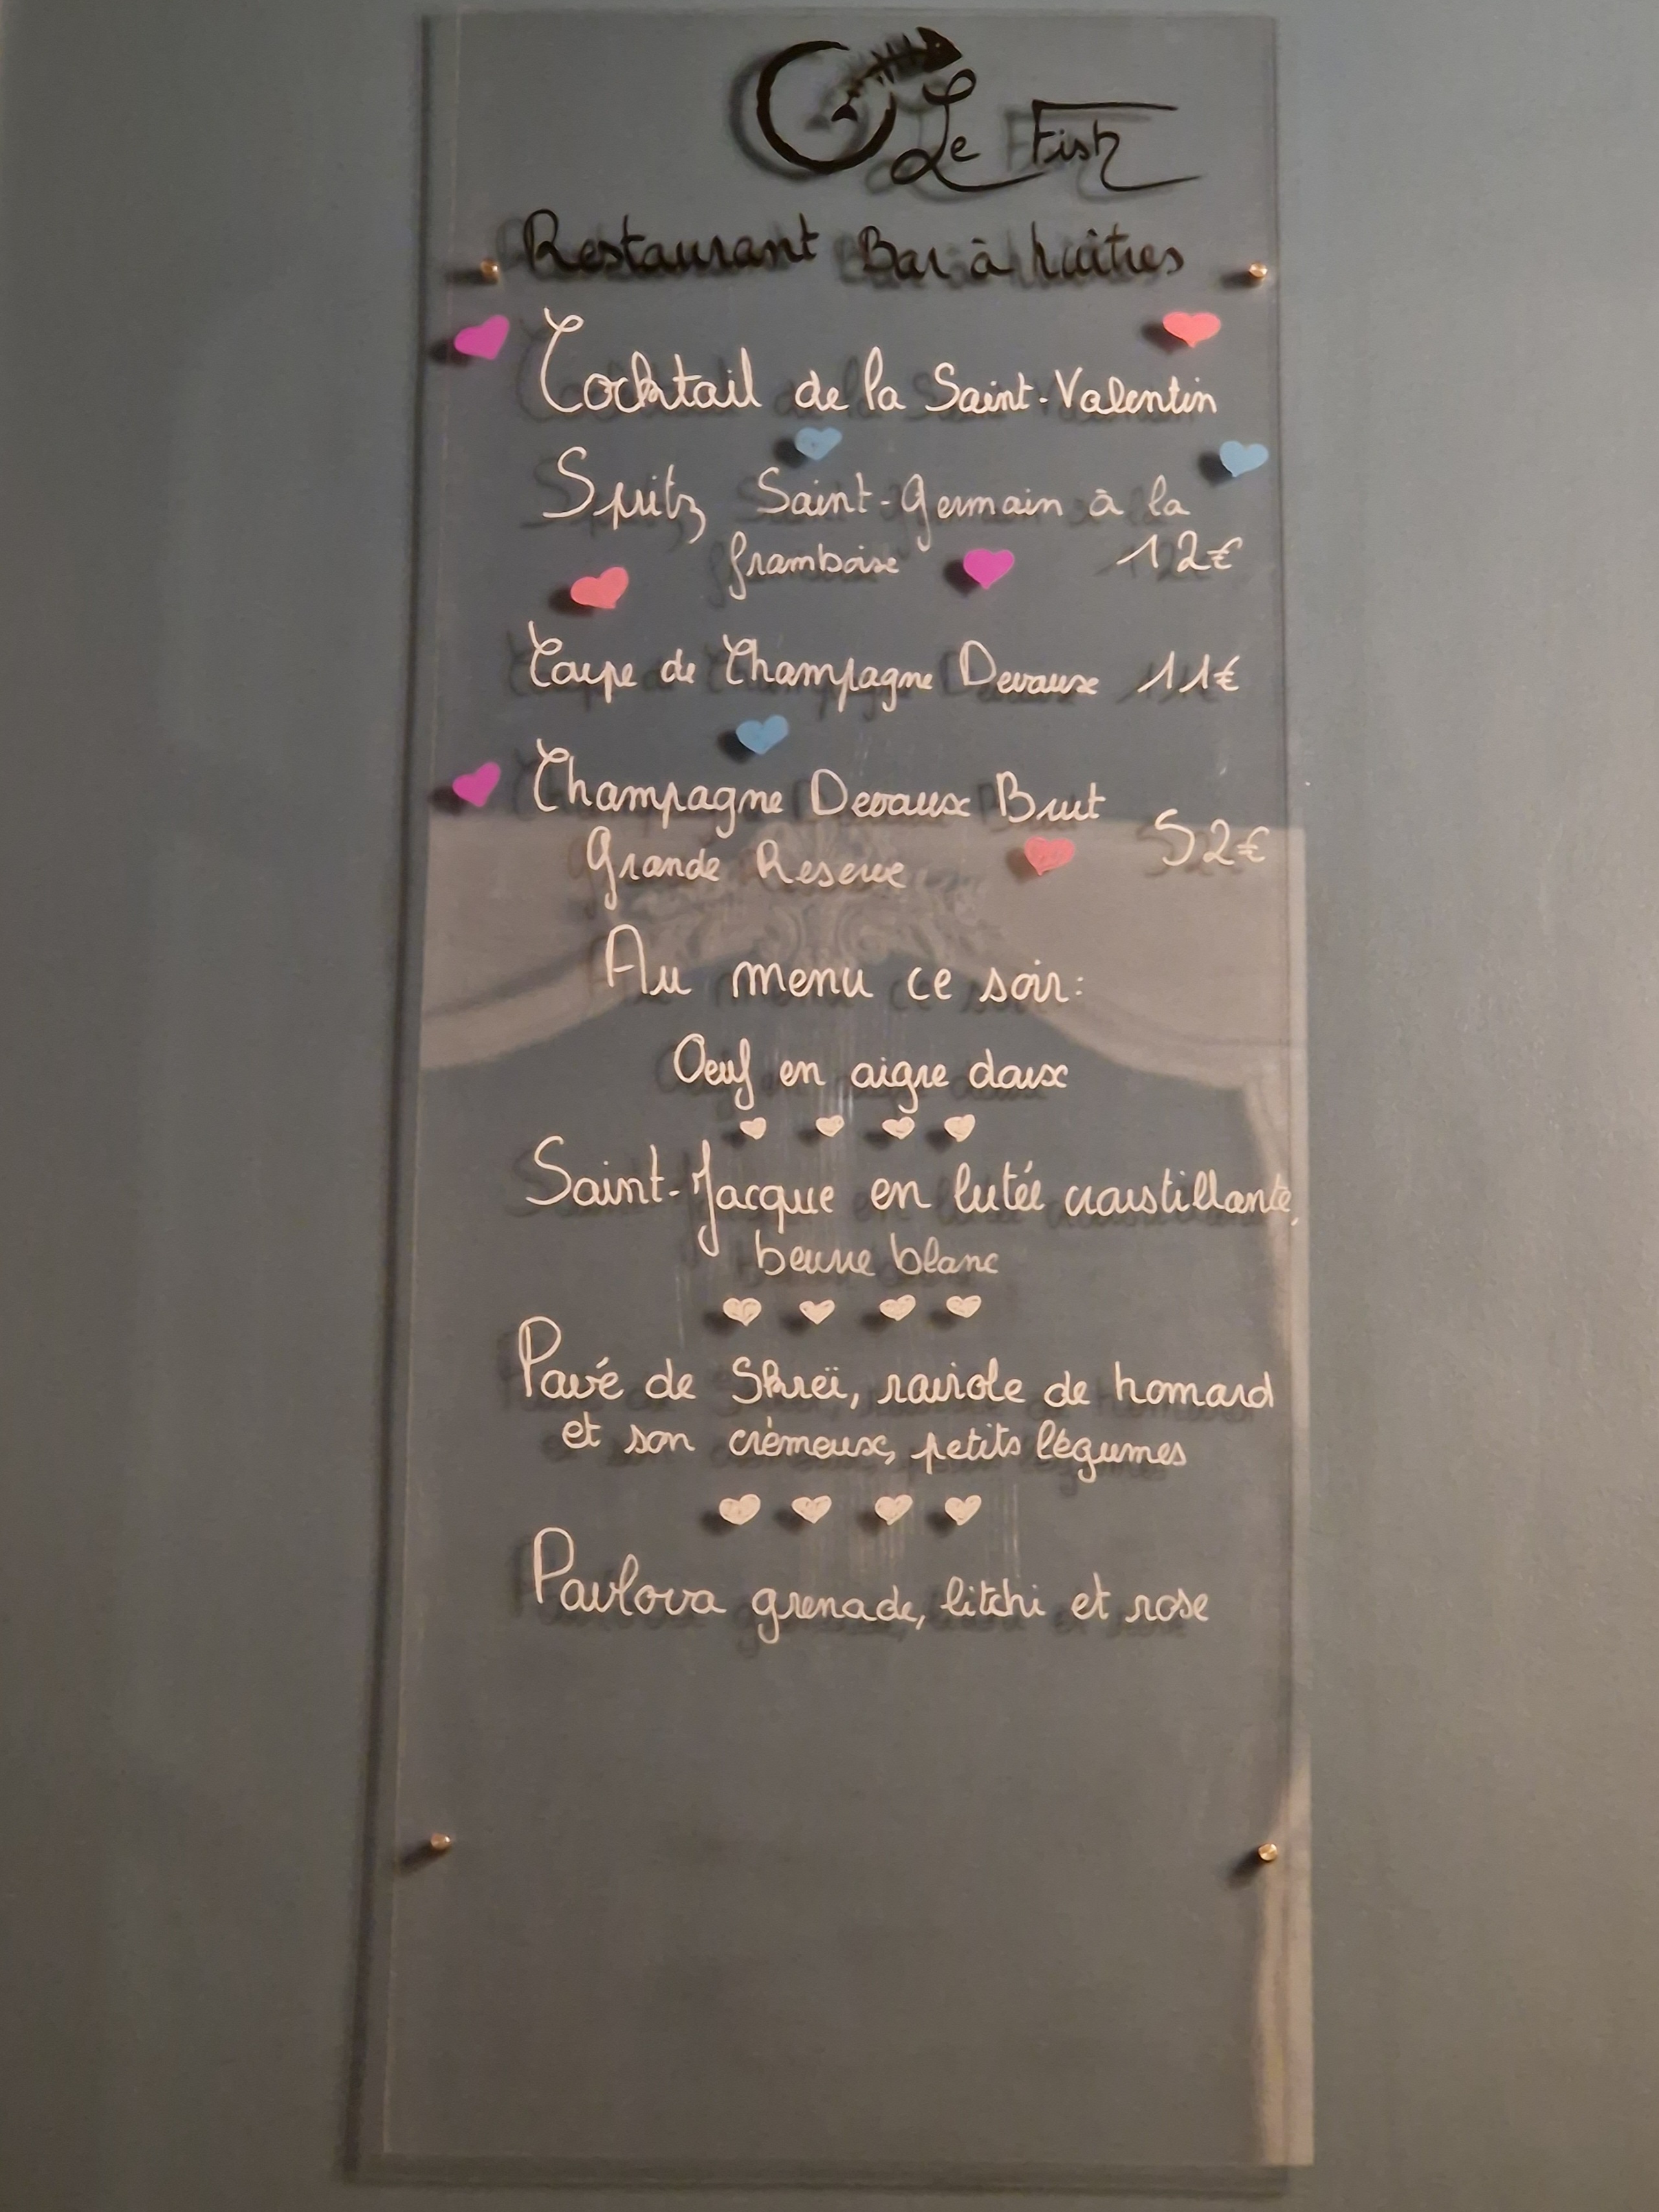 Le Fish
Restaurant Bar à huîtres
Cocktail de la Saint-Valentin
Spritz Saint-Germain à la
framboise 12€
Coupe de Champagne Devaux 11€
Champagne Devaux Brut
Grande Reserve 52€
Au menu ce soir:
Oeuf en aigre doux
Saint-Jacque en lutée croustillante,
beurre blanc
Pavé de Skreï, raviole de homard
et son crèmeux, petits légumes
Pavlova grenade, litchi et rose